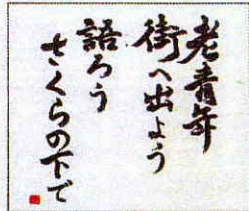 老青年
街へ出よう
語ろう
さくらの下で